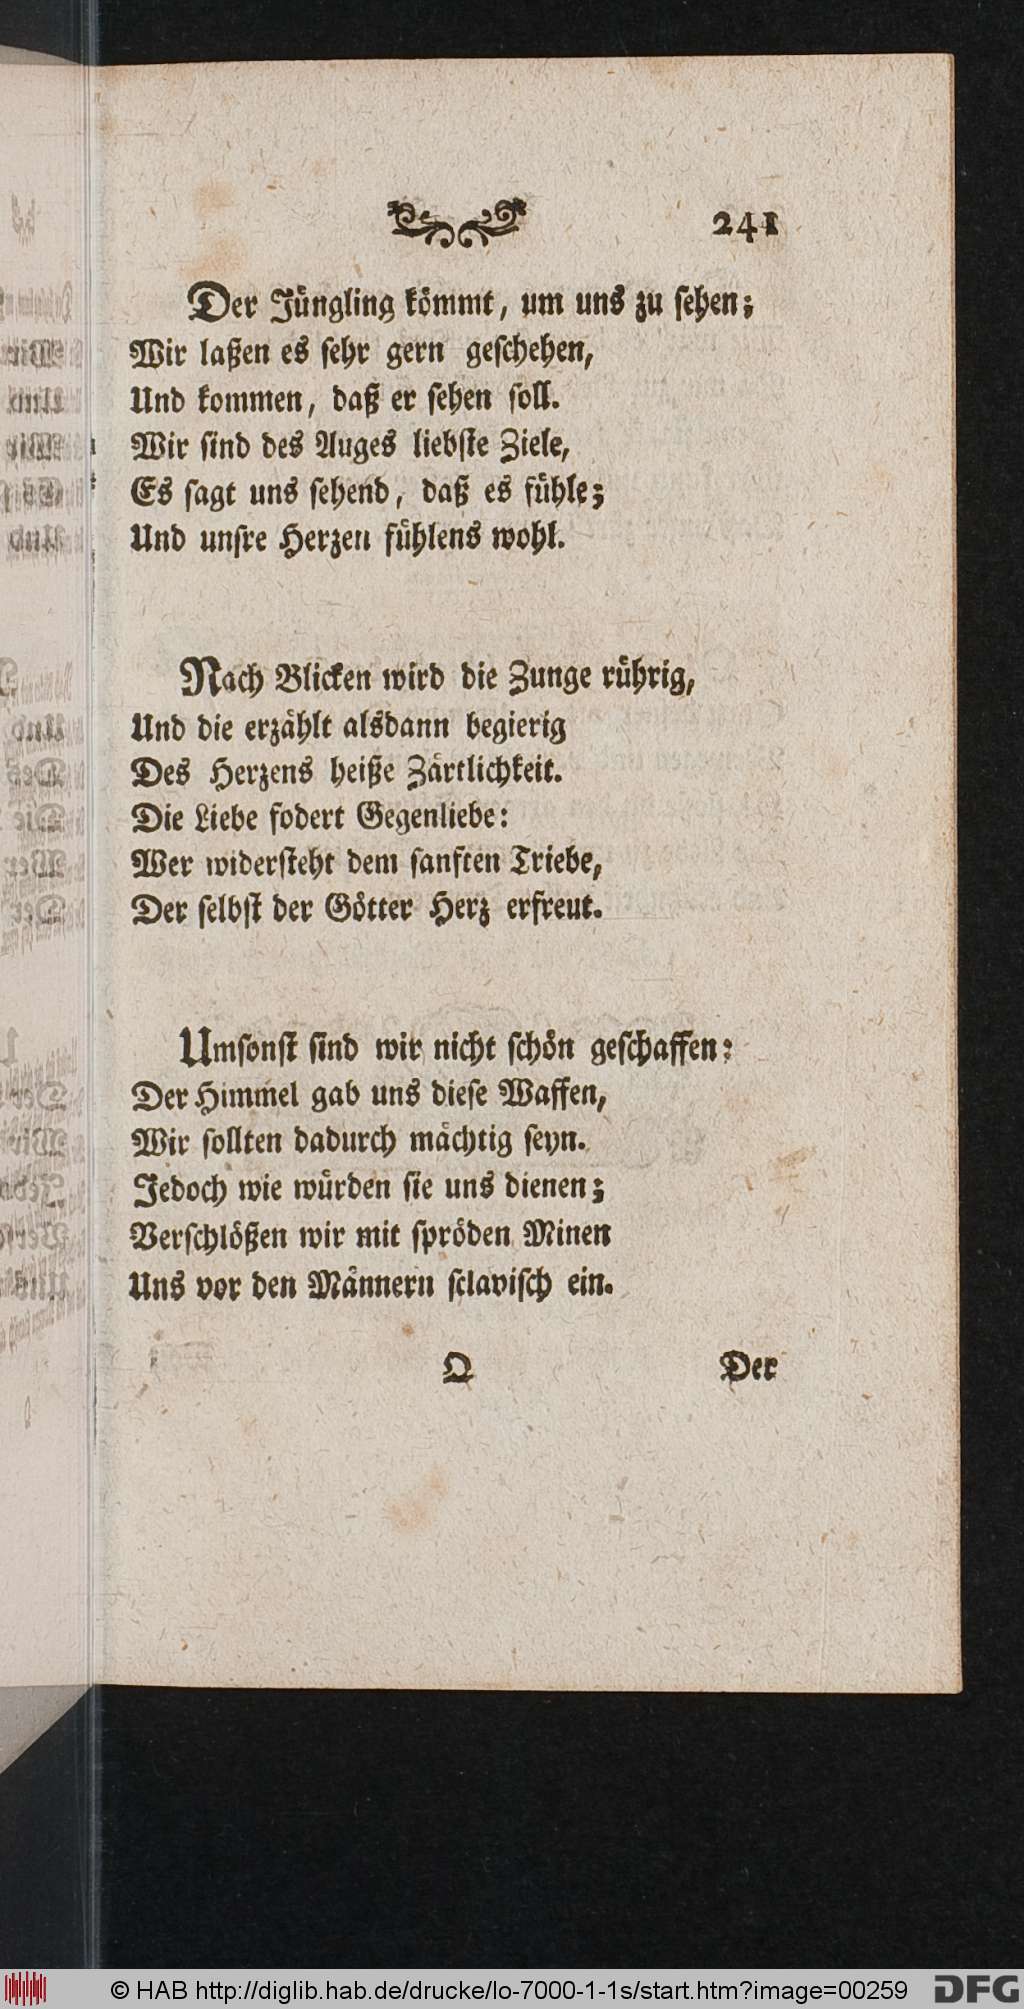 241
Der Jüngling kömmt, um uns zu sehen;
Wir laßen es sehr gern geschehen,
Und kommen, daß er sehen soll.
Wir sind des Auges liebste Ziele,
Es sagt uns sehend, daß es fühle;
Und unsre Herzen fühlens wohl.
Nach Blicken wird die Zunge rührig,
Und die erzählt alsdann begierig
Des Herzens heiße Zärtlichkeit.
Die Liebe fodert Gegenliebe:
Wer widersteht dem sanften Triebe,
Der selbst der Götter Herz erfreut.
Umsonst sind wir nicht schön geschaffen:
Der Himmel gab uns diese Waffen,
Wir sollten dadurch mächtig seyn.
Jedoch wie würden sie uns dienen;
Verschlößen wir mit spröden Minen
Uns vor den Männern sclavisch ein.
Q Der
© HAB http://diglib.hab.de/drucke/lo-7000-1-1s/start.htm?image=00259 DFG